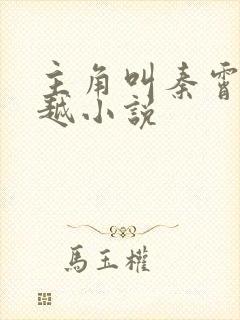 主角叫秦霄
越小说
馬玉權